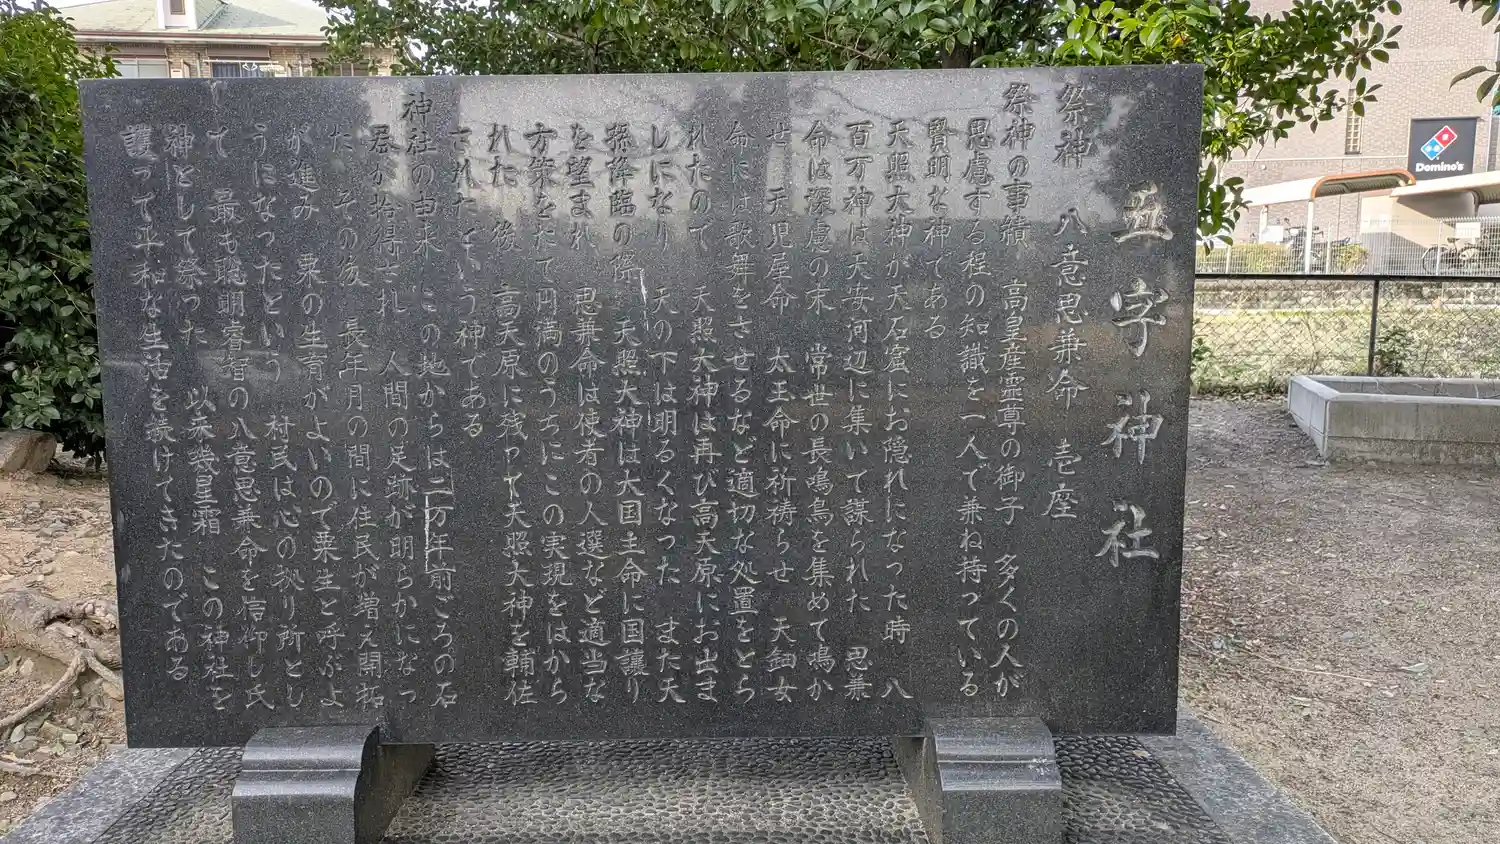 並字神社
祭神 八意思兼命 壱座
祭神の事績 高皇産霊尊の御子 多くの人が
思慮する程の知識を一人で兼ね持っている
賢明な神である
天照大神が天石窟にお隠れになった時 八
百万神は天安河辺に集いて謀られた 思兼
命は深慮の末 常世の長鳴鳥を集めて鳴か
せ 天児屋命 太玉命に祈祷らせ 天鈿女
命には歌舞をさせるなど適切な処置をとら
れたので 天照大神は再び高天原にお出ま
しになり 天の下は明るくなった また天
孫降臨の際 天照大神は大国主命に国譲り
を望まれ 思兼命は使者の人選など適当な
方策をたて円満のうちにこの実現をはから
れた 後 高天原に残って天照大神を輔佐
されたという神である
神社の由来 この地からは二万年前ごろの石
器が拾得され 人間の足跡が明らかになっ
た その後 長年月の間に住民が増え開拓
が進み 粟の生育がよいので粟生と呼ぶよ
うになったという 村民は心の拠り所とし
て 最も聡明睿智の八意思兼命を信仰し氏
神として祭った 以来幾星霜 この神社を
護って平和な生活を続けてきたのである
Domino's